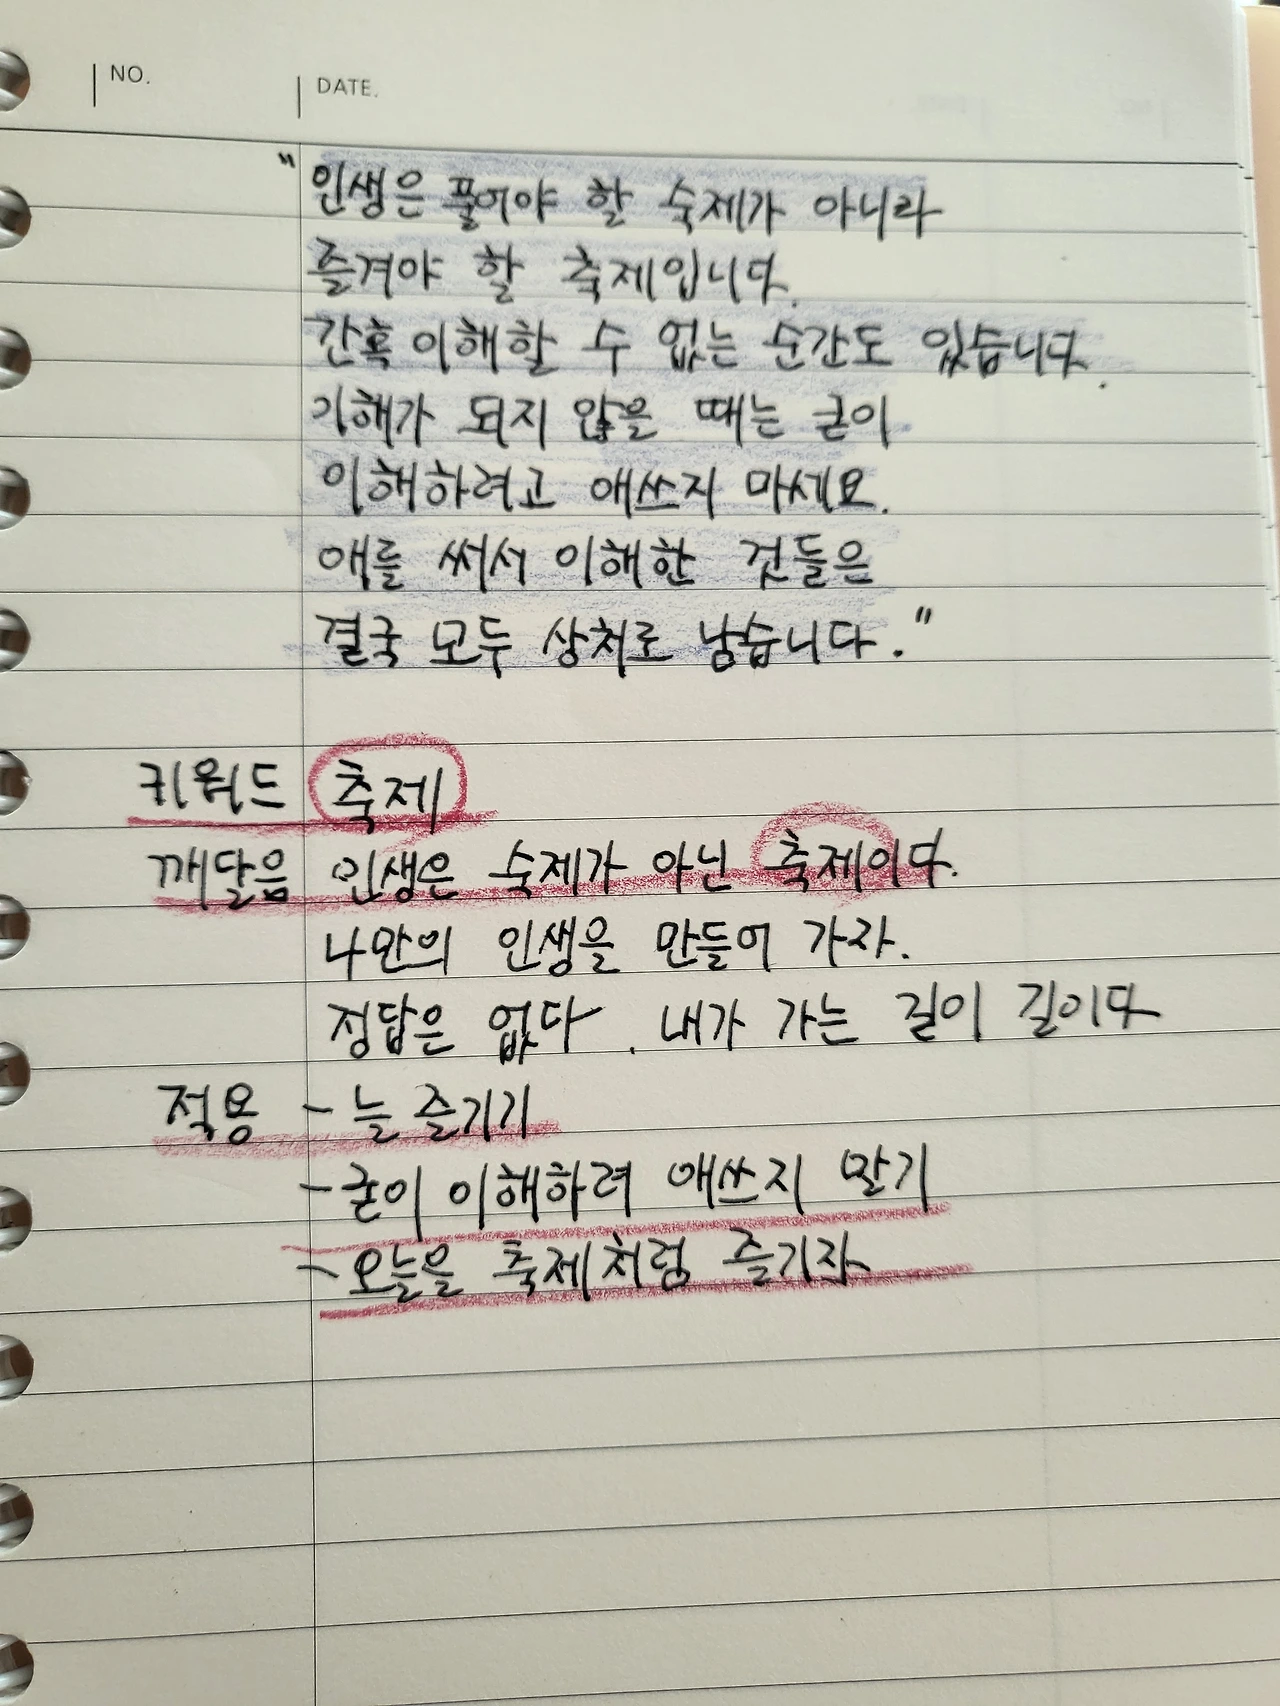 NO.
DATE.
"인생은 풀어야 할 숙제가 아니라
즐겨야 할 축제입니다.
간혹 이해할 수 없는 순간도 있습니다.
이해가 되지 않을 때는 굳이
이해하려고 애쓰지 마세요.
애를 써서 이해한 것들은
결국 모두 상처로 남습니다."
키워드 축제
깨달음 인생은 숙제가 아닌 축제이다.
나만의 인생을 만들어 가자.
정답은 없다. 내가 가는 길이 길이다
적용 - 늘 즐기기
- 굳이 이해하려 애쓰지 말기
- 오늘을 축제처럼 즐기자